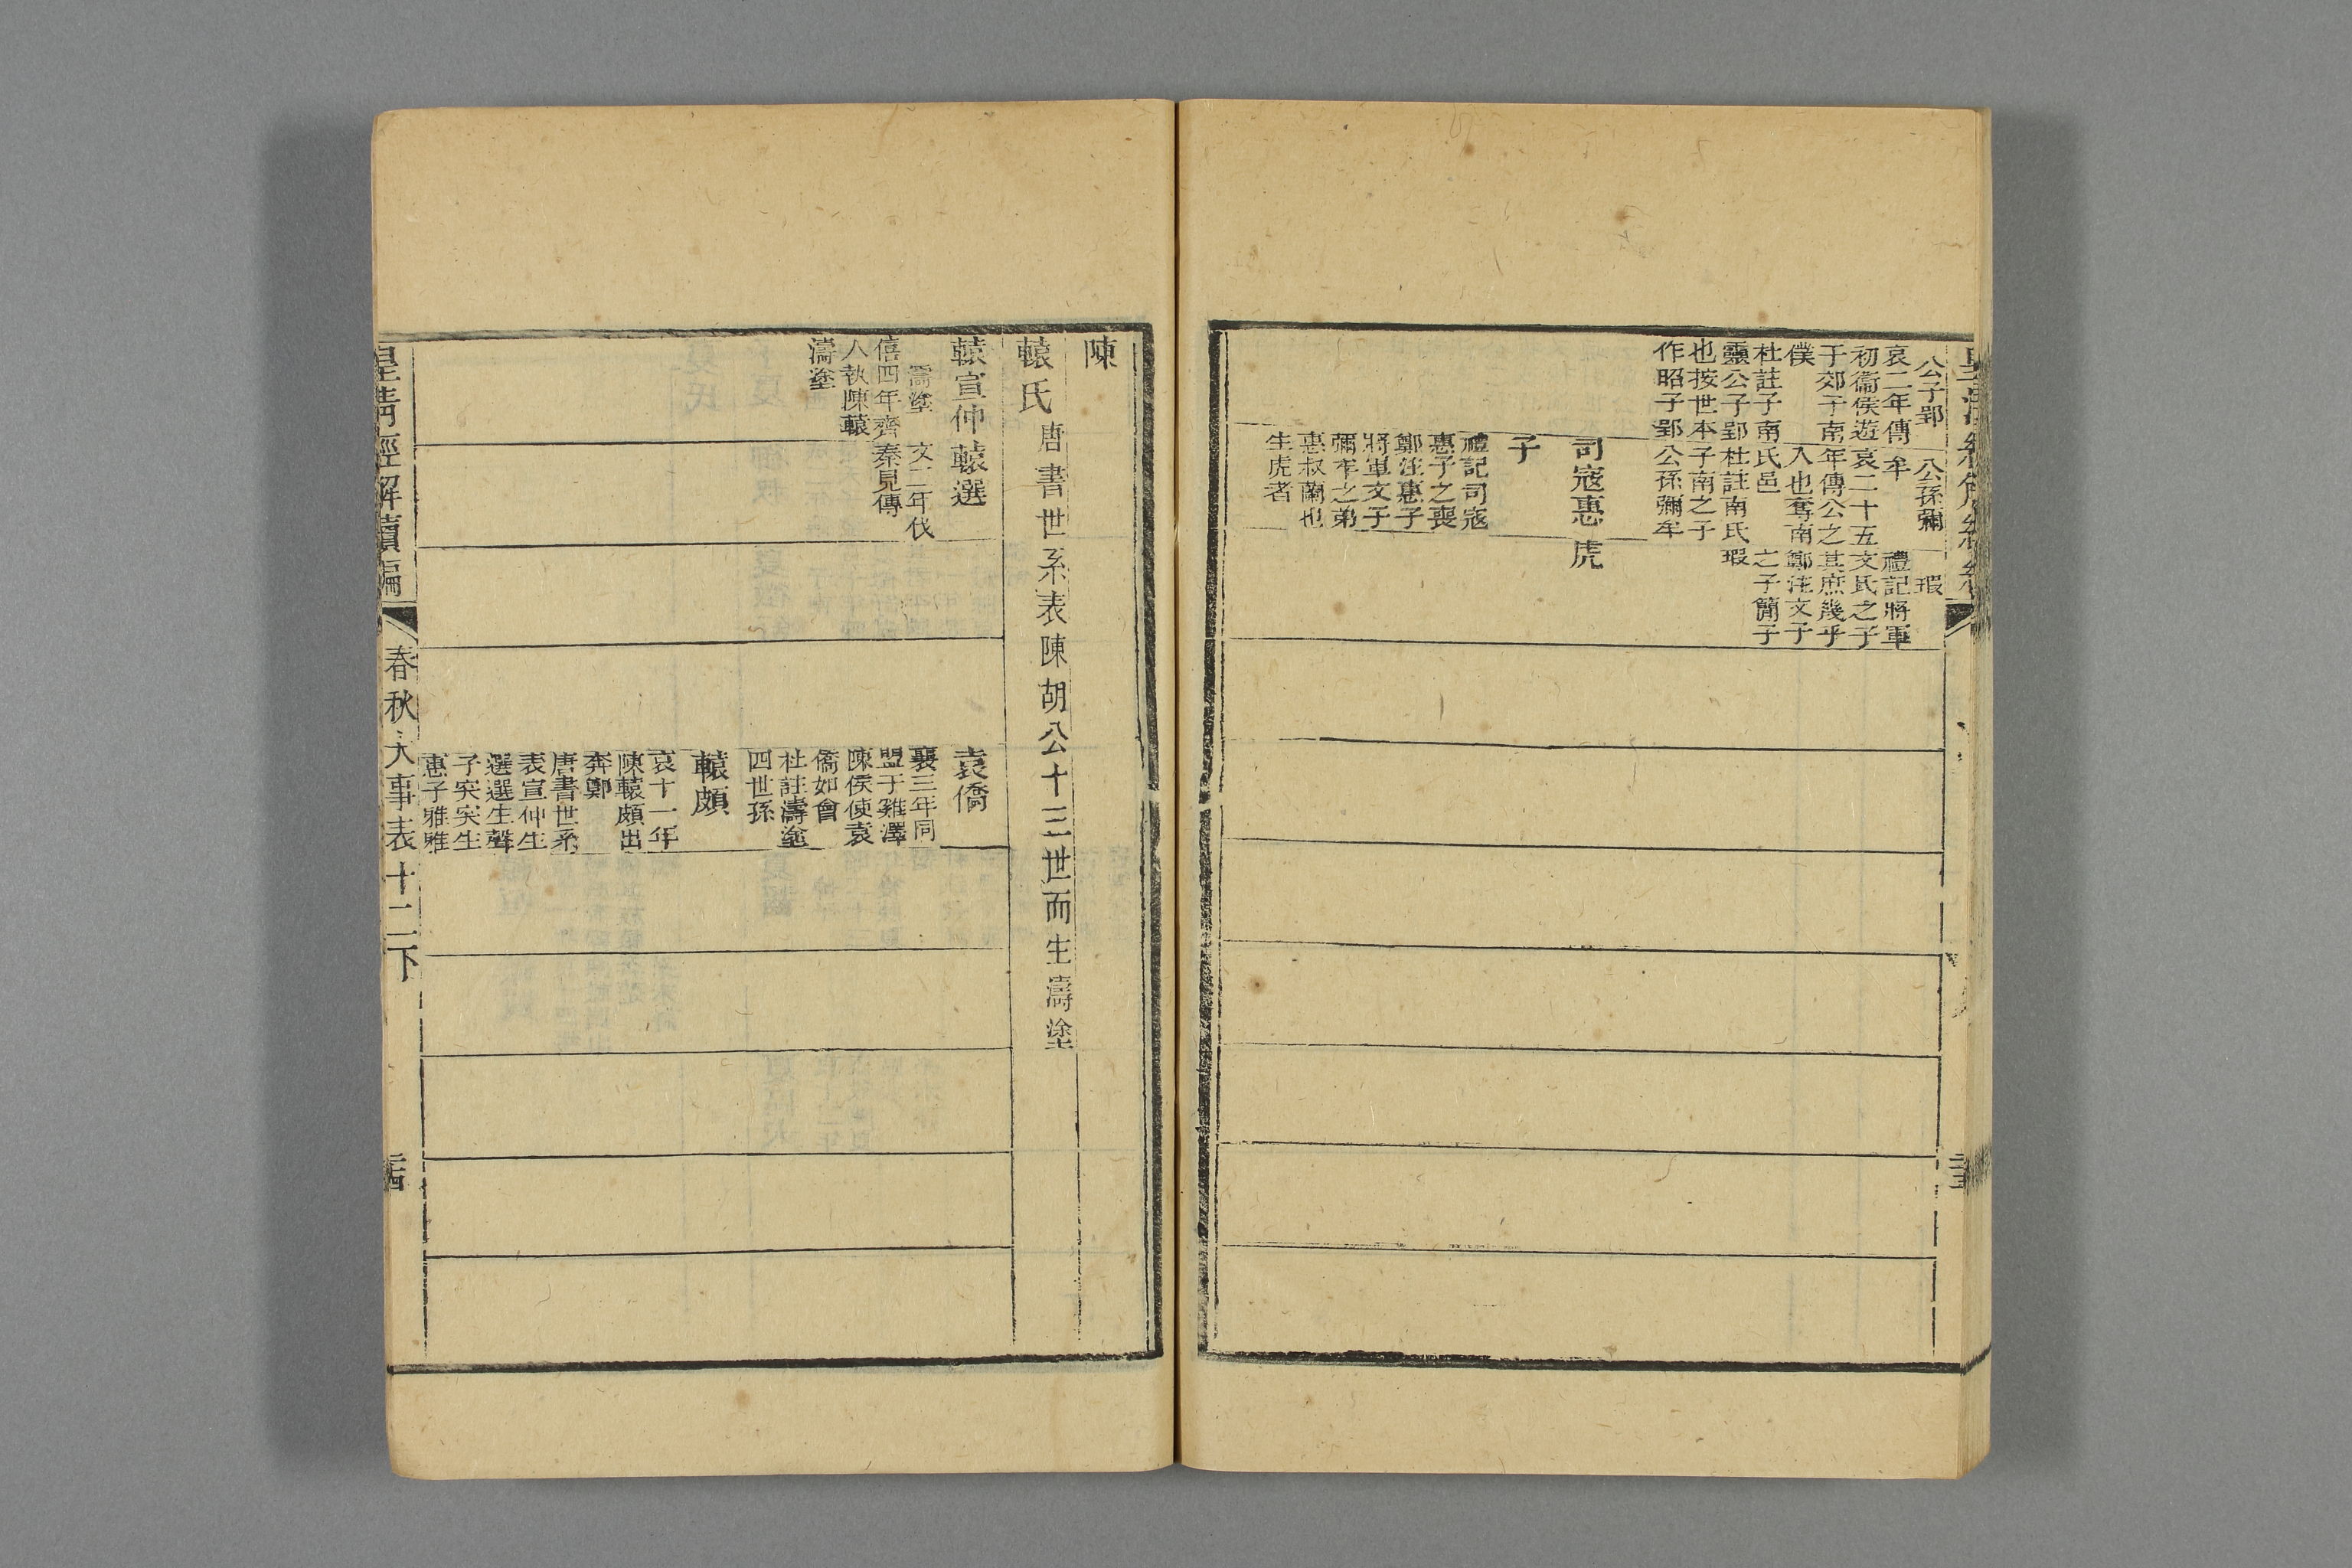 公子郢
哀二年傳
初衞侯遊
于郊子南
僕
杜註子南
靈公子郢
也按世本
作昭子郢
公孫彌
牟
哀二十五
年傳公之
入也奪南
氏邑
杜註南氏
子南之子
公孫彌牟
瑕
禮記將軍
文氏之子
其庶幾乎
鄭注文子
之子簡子
瑕
司寇惠
子
禮記司寇
惠子之喪
鄭注惠子
將軍文子
彌牟之弟
惠叔蘭也
生虎者
虎
陳
轅氏唐書世系表陳胡公十三世而生濤塗
轅宣仲
濤塗
僖四年齊
人執陳轅
濤塗
轅選
文二年伐
秦見傳
袁僑
襄三年同
盟于雞澤
陳侯使袁
僑如會
杜註濤塗
四世孫
轅頗
哀十一年
陳轅頗出
奔鄭
唐書世系
表宣仲生
選選生聲
子突突生
惠子雅雅
皇清經解續編 春秋大事表十二下